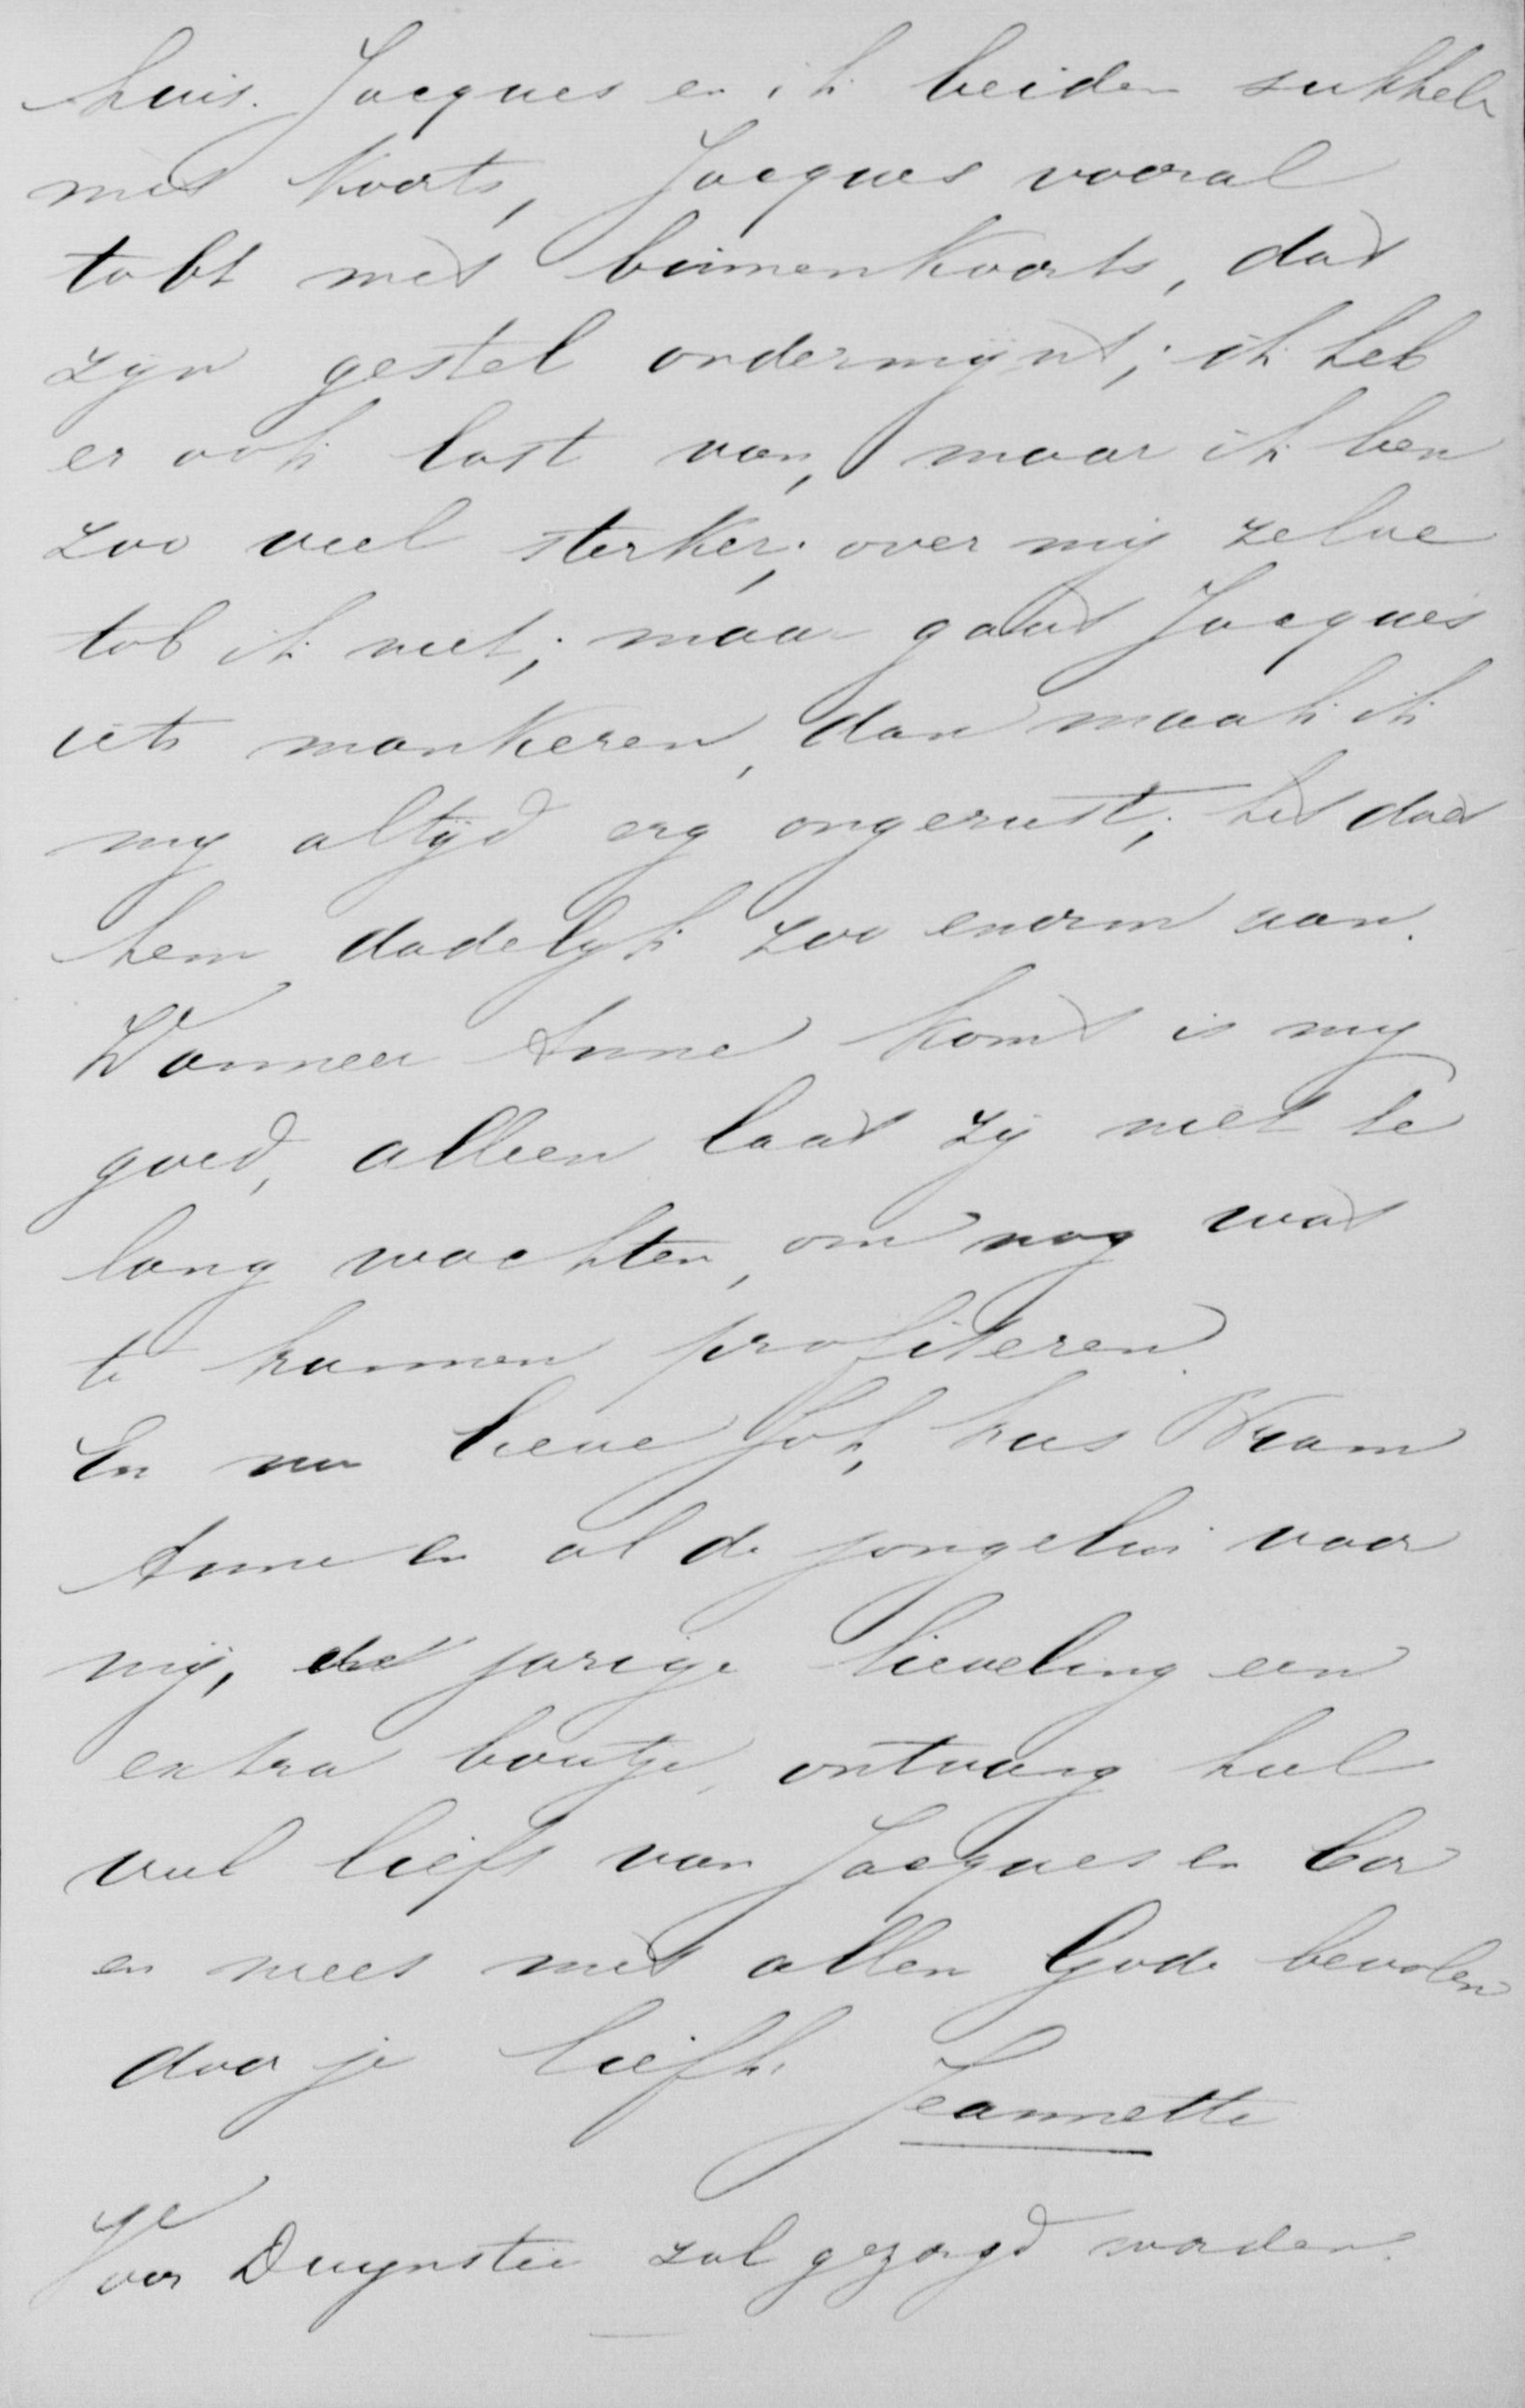 huis. Jacques en ik beiden sukkeln
met koorts, Jacques vooral
tobt met binnenkoorts, dat
zyn gestel ondermijnt; ik heb
er ook last van, maar ik ben
zoo veel sterker; over mij zelve
tob ik niet; maar gaat Jacques
iets mankeren, dan maak ik
my altyd erg ongerust; het doet
hem dadelyk zoo enorm aan.
Wanneer Anna komt is my
goed, alleen laat zij niet te
lang wachten, om nog wat
te kunnen profiteren.
En nu lieve Joh, kus Bram
Anna en al de jongelui voor
mij, de jarige lieveling een
extra boutje, ontvang heel
veel liefs van Jacques en Cor
en wees met allen Gode bevolen
door je liefh.
Jeannette
Voor Duynstee zal gezorgd worden.